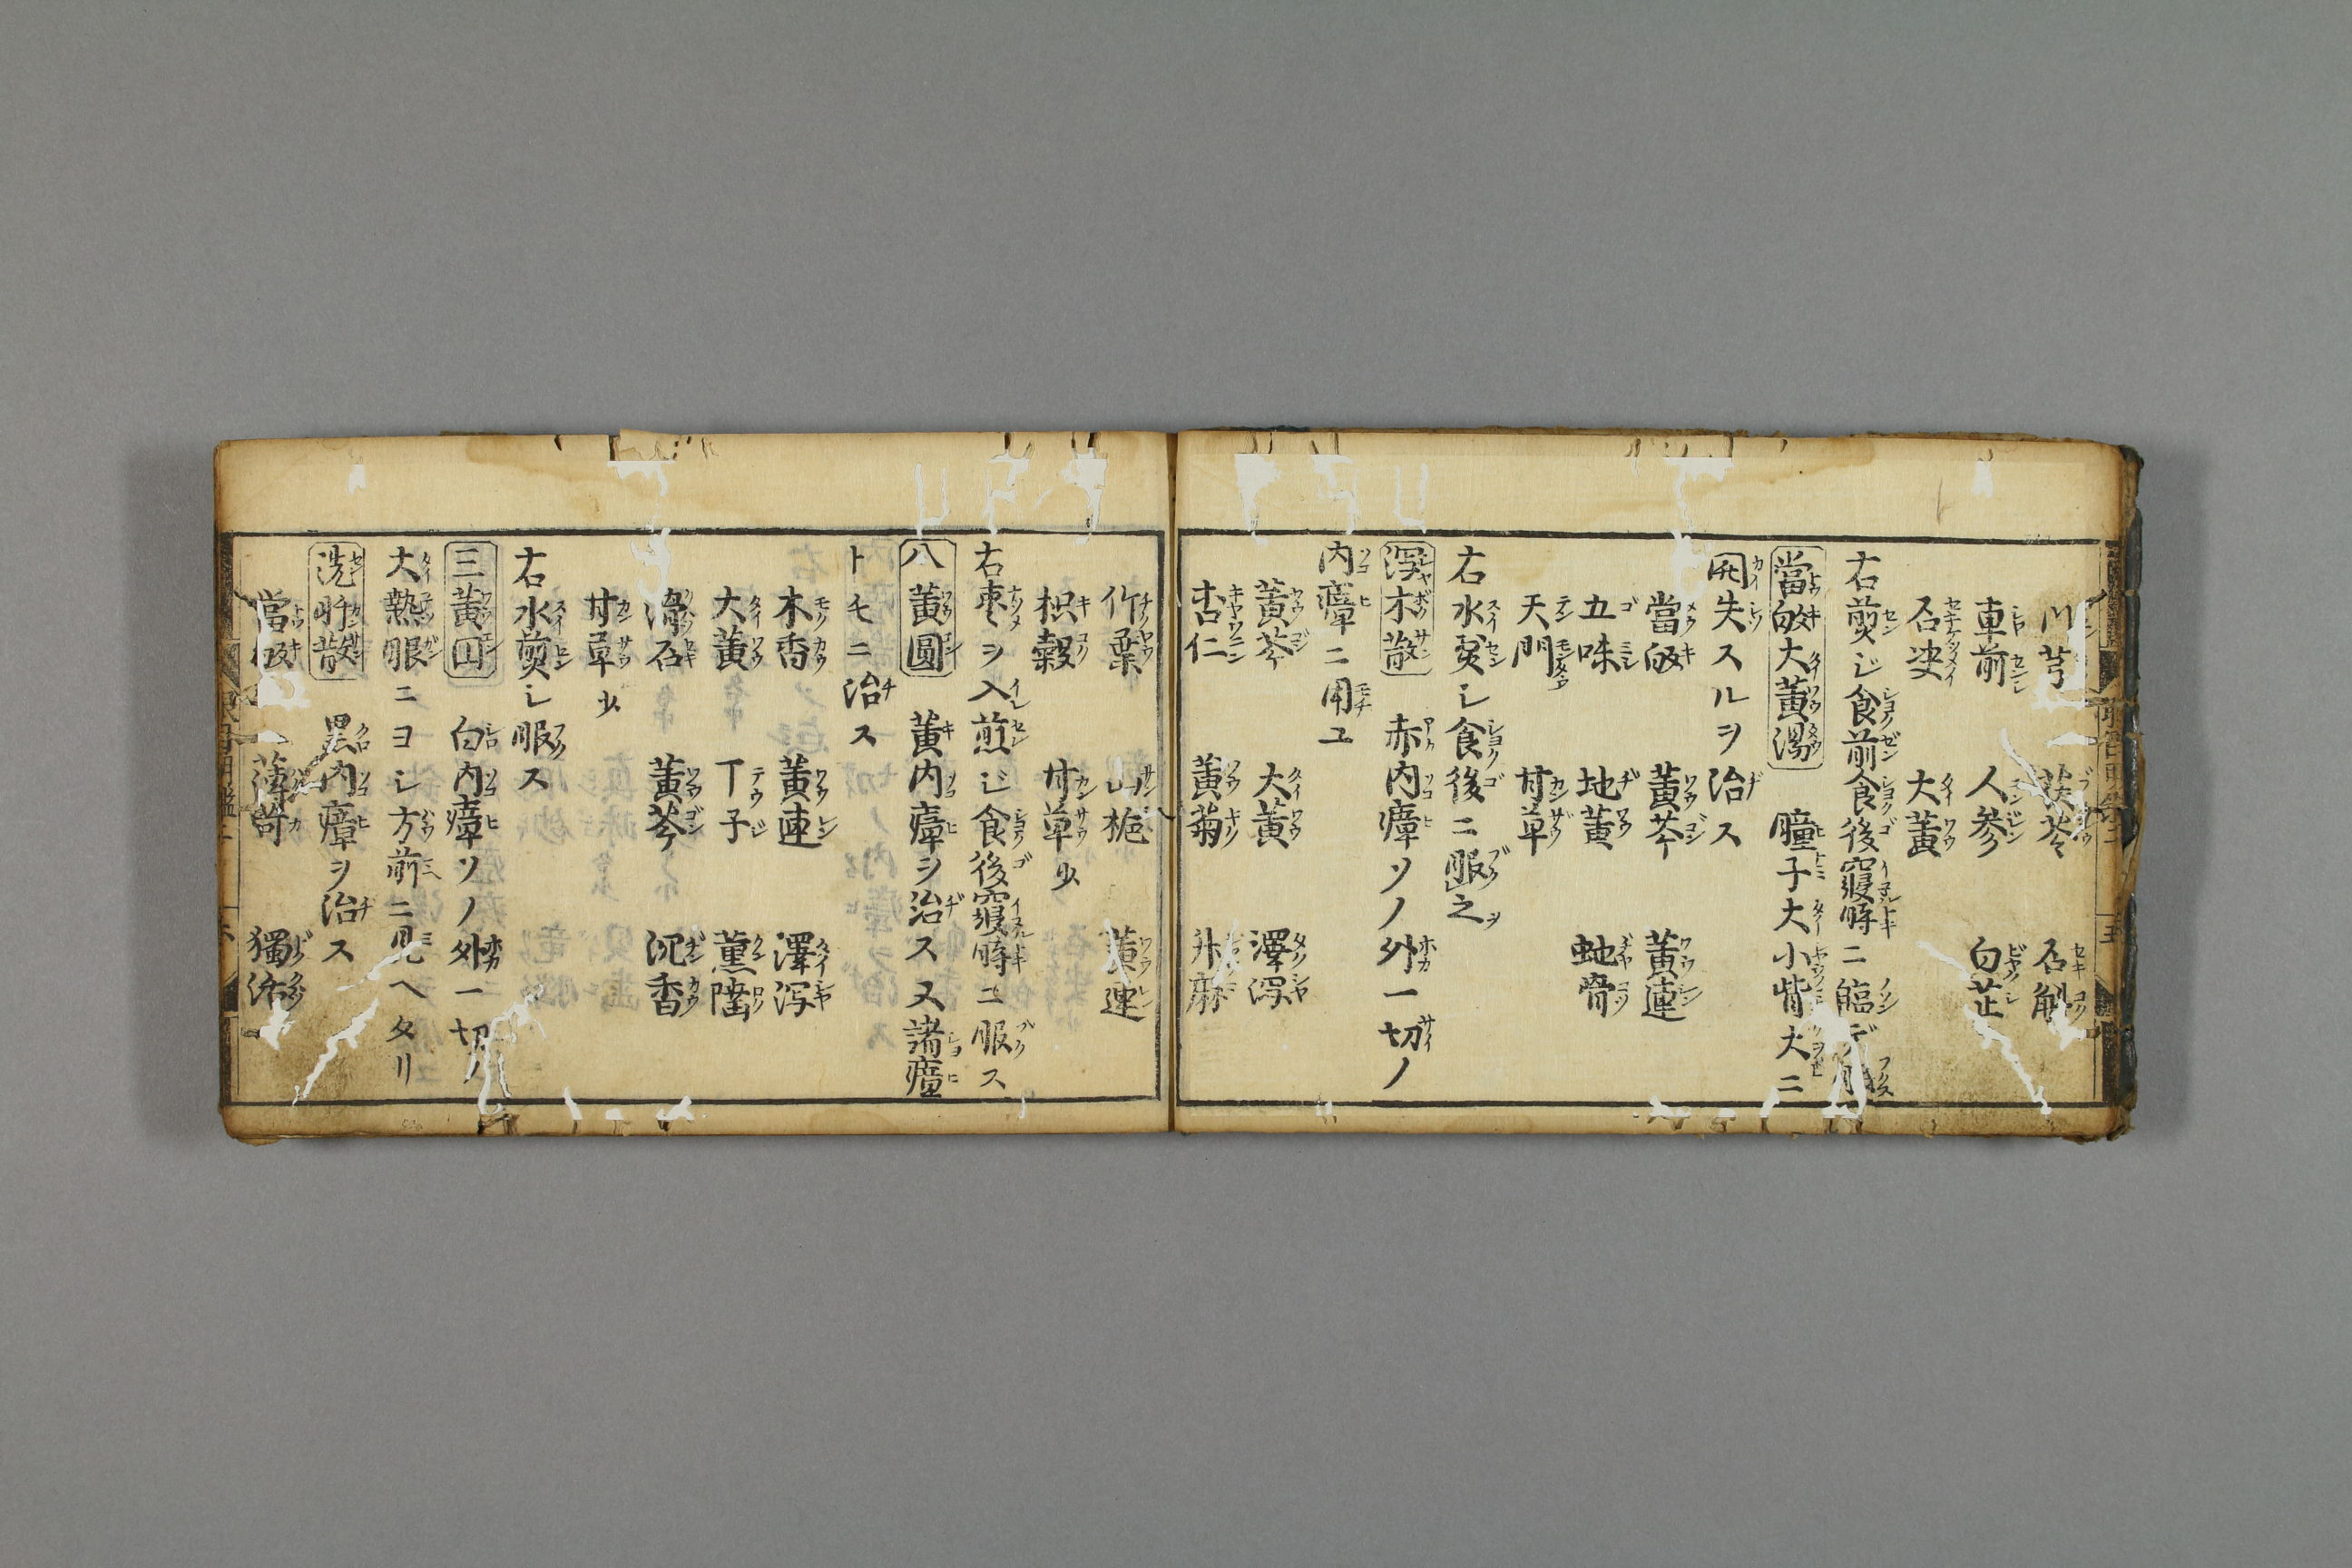 川芎 茯苓 石斛
車前 人参 白芷
石决 大黄
右煎ジ食前食後寢時ニ臨デ服
當皈大黄湯 瞳子大小眥大ニ
開失スルヲ治ス
當皈 黄芩 黄連
五味 地黄 蚍骨
天門 甘草
右水煎シ食後ニ服之
瀉木散 赤内瘴ソノ外一切ノ
内瘴ニ用ユ
黄芩 大黄 澤瀉
杏仁 黄菊 升麻
竹葉 山梔 黄連
枳穀 甘草少
右棗ヲ入煎ジ食後寢時ニ服ス
八黄圓 黄内瘴ヲ治ス又諸瘴
トモニ治ス
木香 黄連 澤瀉
大黄 丁子 薫陸
滑石 黄芩 沉香
甘草少
右水煎シ服ス
三黄円 白内瘴ソノ外一切ノ
大熱眼ニヨシ方前ニ見ヘタリ
洗肝散 黒内瘴ヲ治ス
當皈 薄荷 獨活